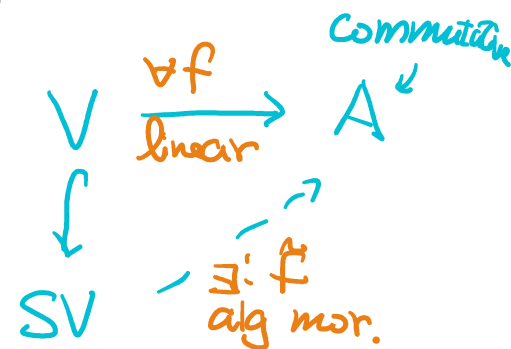 Commutative
∀f
V A
linear
∃! f̃
SV
alg mor.